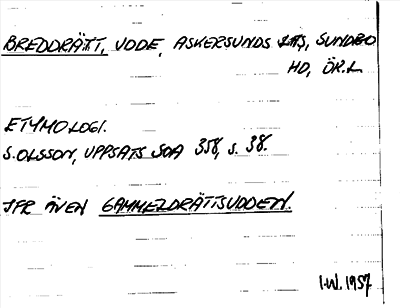 BREDDRÄTT, UDDE, ASKERSUNDS LFS, SUNDBO
HD, ÖR.L
ETYMOLOGI.
S. OLSSON, UPPSATS SOA 358, S. 38.
JFR ÄVEN GAMMELDRÄTTSUDDEN.
I.W. 1957